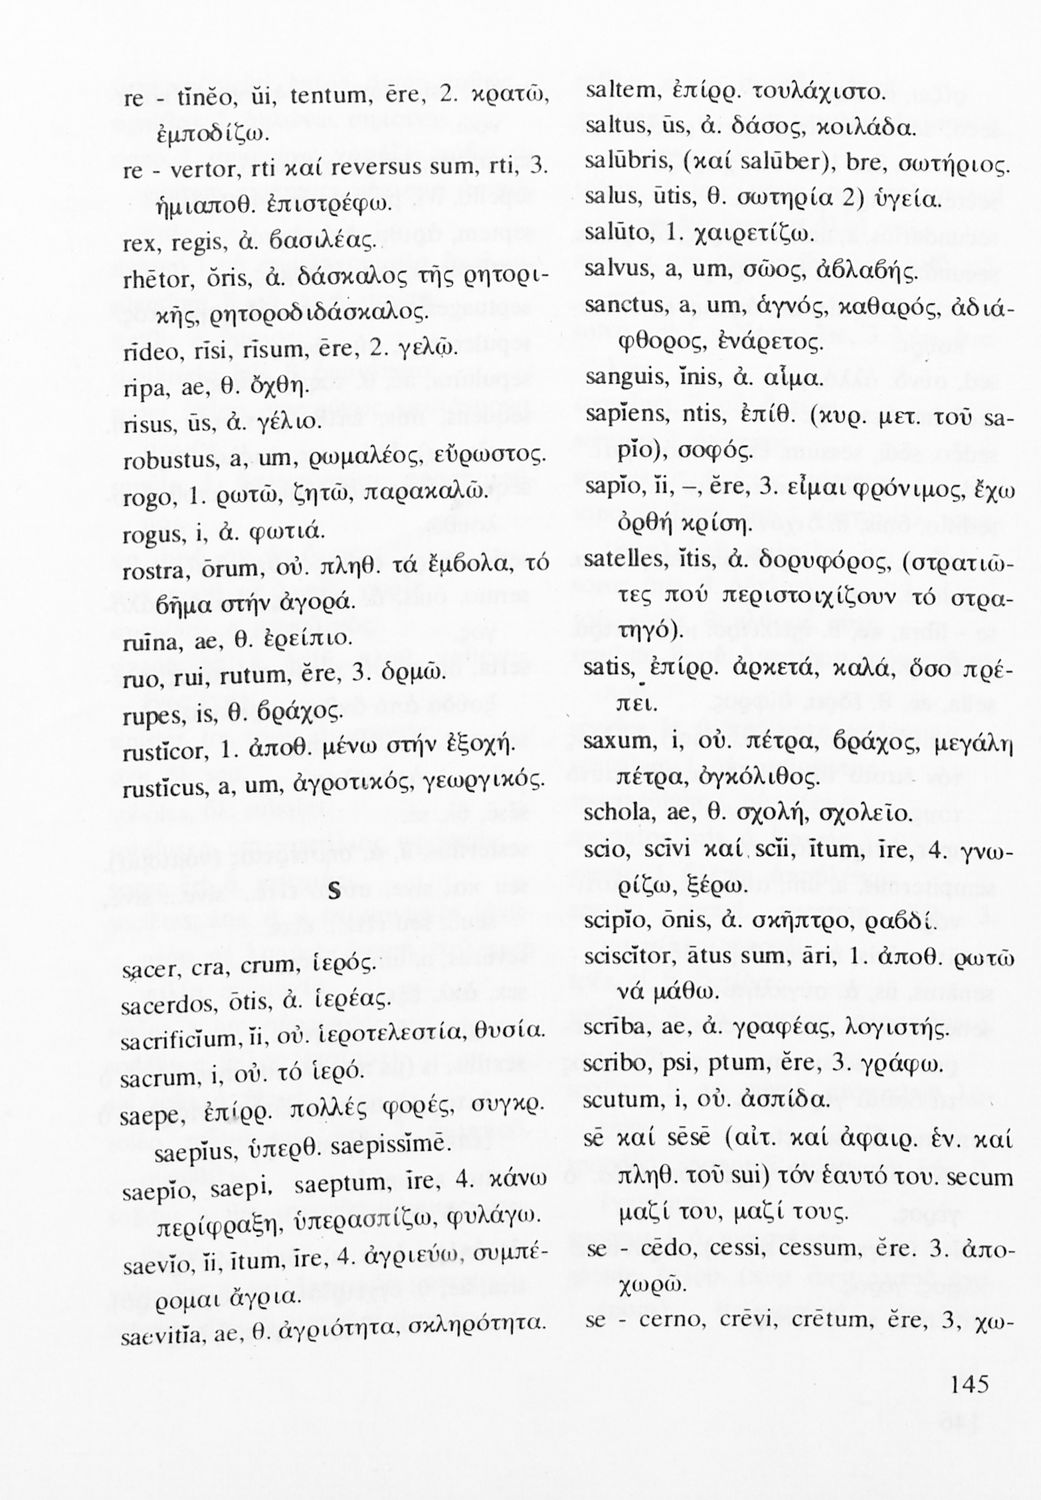 re - tĭnĕo, ŭi, tentum, ēre, 2. κρατῶ,
ἐμποδίζω.
re - vertor, rti καί reversus sum, rti, 3.
ἡμιαποθ. ἐπιστρέφω.
rex, regis, ἀ. βασιλέας.
rhētor, ŏris, ἀ. δάσκαλος τῆς ρητορι-
κῆς, ρητοροδιδάσκαλος.
rīdeo, rīsi, rīsum, ēre, 2. γελῶ.
ripa, ae, θ. ὄχθη.
risus, ūs, ἀ. γέλιο.
robustus, a, um, ρωμαλέος, εὔρωστος.
rogo, 1. ρωτῶ, ζητῶ, παρακαλῶ.
rogus, i, ἀ. φωτιά.
rostra, ōrum, οὐ. πληθ. τά ἔμβολα, τό
βῆμα στήν ἀγορά.
ruīna, ae, θ. ἐρείπιο.
ruo, rui, rutum, ĕre, 3. ὁρμῶ.
rupes, is, θ. βράχος.
rustĭcor, 1. ἀποθ. μένω στήν ἐξοχή.
rustĭcus, a, um, ἀγροτικός, γεωργικός.
S
sacer, cra, crum, ἱερός.
sacerdos, ōtis, ἀ. ἱερέας.
sacrificĭum, ĭi, οὐ. ἱεροτελεστία, θυσία.
sacrum, i, οὐ. τό ἱερό.
saepe, ἐπίρρ. πολλές φορές, συγκρ.
saepĭus, ὑπερθ. saepissĭmē.
saepĭo, saepi, saeptum, īre, 4. κάνω
περίφραξη, ὑπερασπίζω, φυλάγω.
saevĭo, ĭi, ītum, īre, 4. ἀγριεύω, συμπέ-
ρομαι ἄγρια.
saevitĭa, ae, θ. ἀγριότητα, σκληρότητα.
saltem, ἐπίρρ. τουλάχιστο.
saltus, ūs, ἀ. δάσος, κοιλάδα.
salūbris, (καί salūber), bre, σωτήριος.
salus, ūtis, θ. σωτηρία 2) ὑγεία.
salūto, 1. χαιρετίζω.
salvus, a, um, σῶος, ἀβλαβής.
sanctus, a, um, ἁγνός, καθαρός, ἀδιά-
φθορος, ἐνάρετος.
sanguis, ĭnis, ἀ. αἷμα.
sapĭens, ntis, ἐπίθ. (κυρ. μετ. τοῦ sa-
pĭo), σοφός.
sapĭo, ĭi, –, ĕre, 3. εἶμαι φρόνιμος, ἔχω
ὀρθή κρίση.
satelles, ĭtis, ἀ. δορυφόρος, (στρατιῶ-
τες πού περιστοιχίζουν τό στρα-
τηγό).
satis, ἐπίρρ. ἀρκετά, καλά, ὅσο πρέ-
πει.
saxum, i, οὐ. πέτρα, βράχος, μεγάλη
πέτρα, ὀγκόλιθος.
schola, ae, θ. σχολή, σχολεῖο.
scio, scīvi καί scĭi, ītum, īre, 4. γνω-
ρίζω, ξέρω.
scipĭo, ōnis, ἀ. σκῆπτρο, ραβδί.
sciscĭtor, ātus sum, āri, 1. ἀποθ. ρωτῶ
νά μάθω.
scrība, ae, ἀ. γραφέας, λογιστής.
scrībo, psi, ptum, ĕre, 3. γράφω.
scutum, i, οὐ. ἀσπίδα.
sē καί sēsē (αἰτ. καί ἀφαιρ. ἑν. καί
πληθ. τοῦ sui) τόν ἑαυτό του. secum
μαζί του, μαζί τους.
se - cēdo, cessi, cessum, ĕre. 3. ἀπο-
χωρῶ.
se - cerno, crēvi, crētum, ĕre, 3, χω-
145